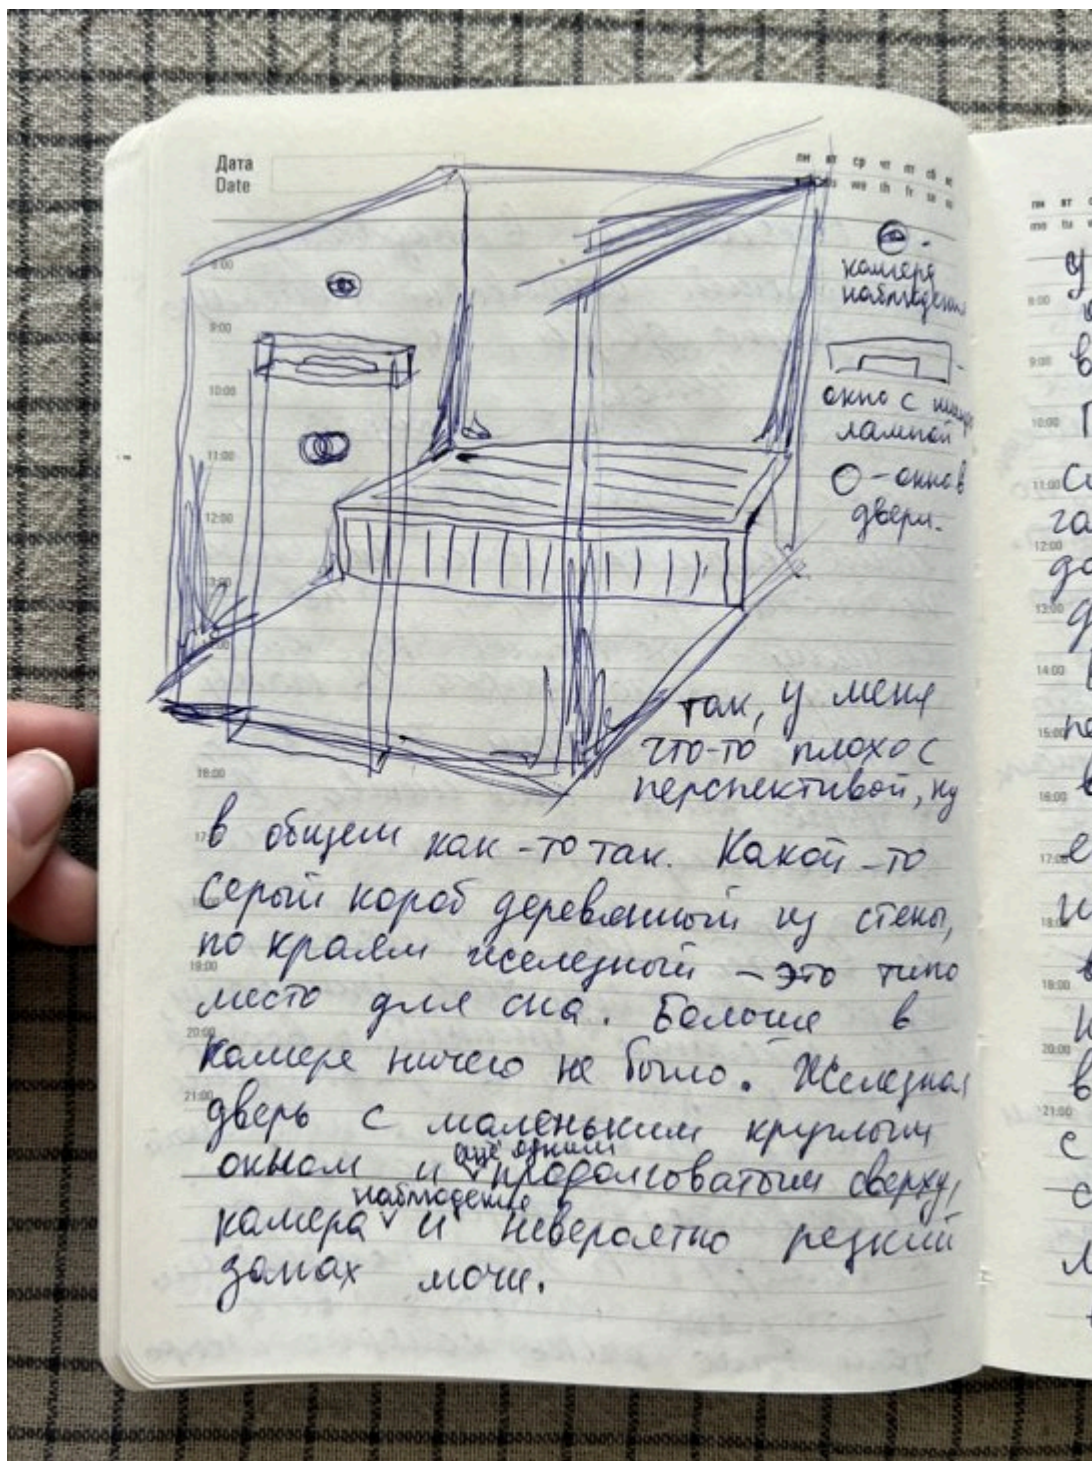 Дата
Date
пн вт ср чт пт сб вс
we th fr sa su
8:00
9:00
10:00
11:00
12:00
13:00
18:00
19:00
20:00
21:00
камера
наблюдения
окно с
лампой
О - окно в
двери.
так, у меня
что-то плохо с
перспективой, ну
в общем как-то так. Какой-то
серый короб деревянный из стены,
по краям железный - это типо
место для сна. Больше в
камере ничего не было. Железная
дверь с маленьким круглым
окном и ещё одним продолговатым сверху,
камера наблюдение и невероятно резкий
запах мочи.
пн вт
mo tu
8:00
9:00
10:00
11:00
12:00
13:00
14:00
15:00
16:00
17:00
18:00
19:00
20:00
21:00